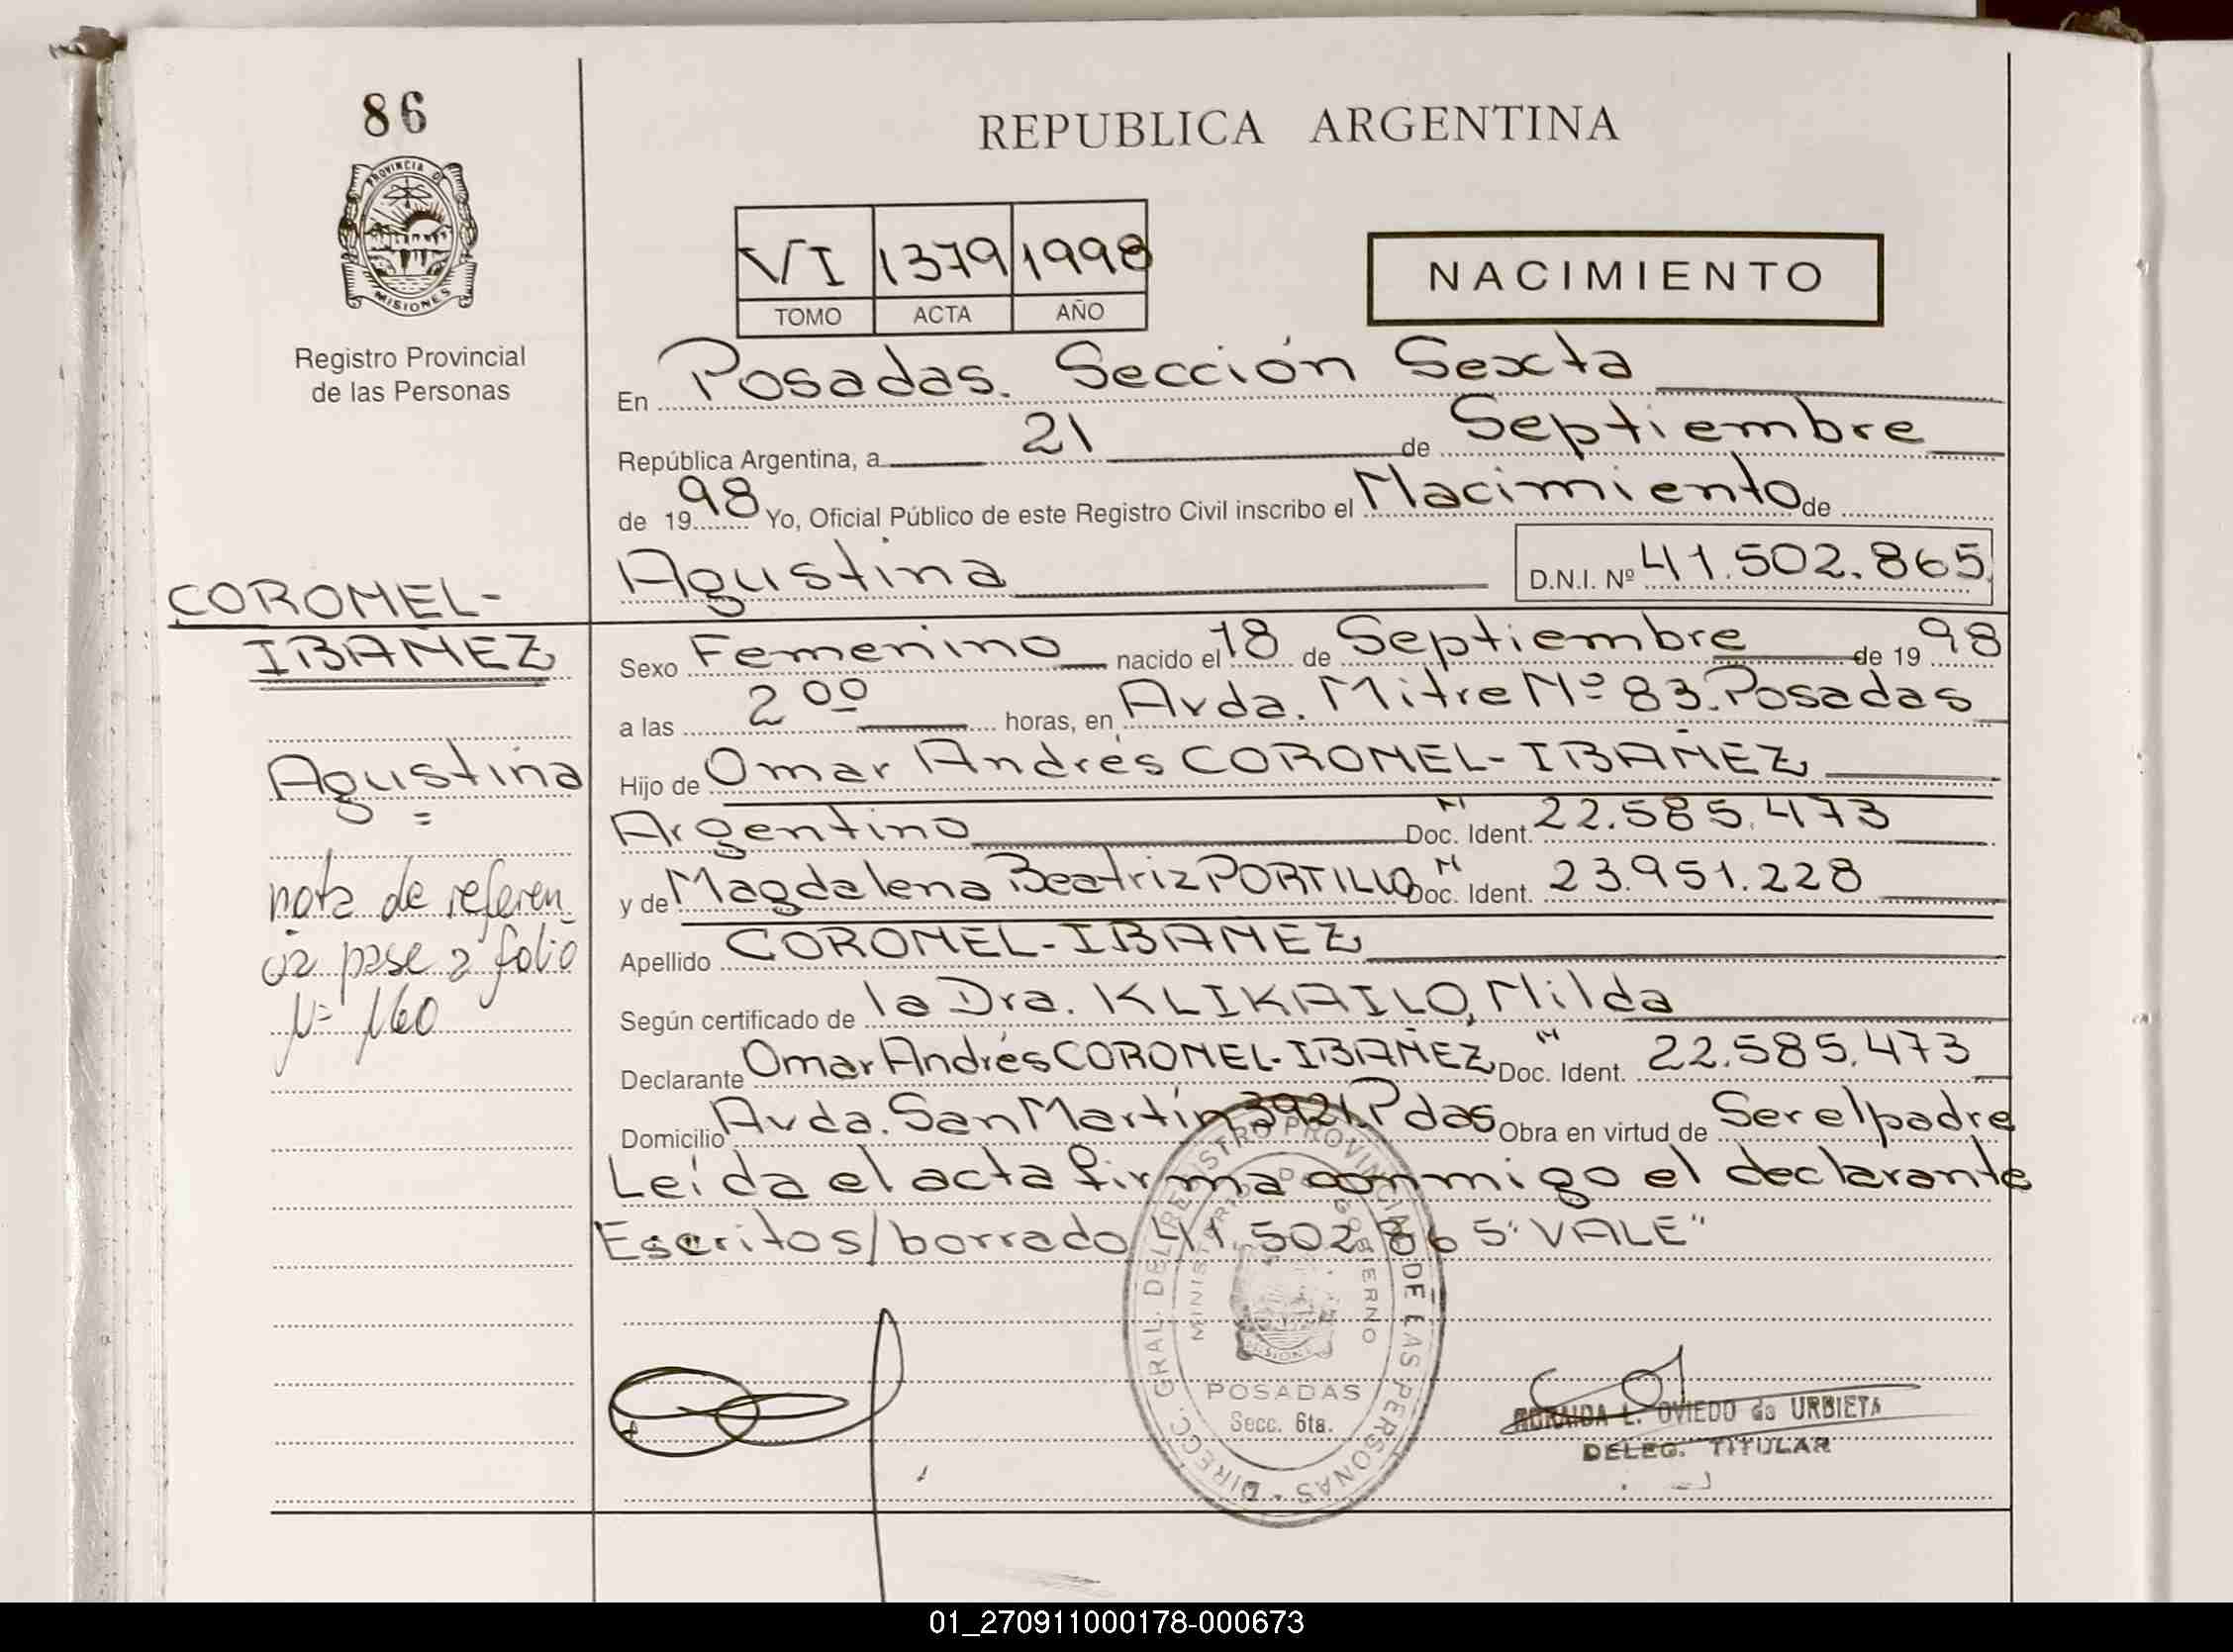 86
REPUBLICA ARGENTINA
PROVINCIA DE
MISIONES
VI 1379 1998
TOMO ACTA AÑO
NACIMIENTO
Registro Provincial
de las Personas
En Posadas. Sección Sexta
República Argentina, a 21 de Septiembre
de 1998 Yo, Oficial Público de este Registro Civil inscribo el Nacimiento de
Agustina D.N.I. Nº 41.502.865
CORONEL-
IBAÑEZ
Agustina
nota de referen
cia pase a folio
Nº 160
Sexo Femenino nacido el 18 de Septiembre de 1998
a las 2 00 horas, en Avda. Mitre Nº 83. Posadas
Hijo de Omar Andrés CORONEL-IBAÑEZ
Argentino Doc. Ident. 22.585.473
y de Magdalena Beatriz PORTILLO Doc. Ident. 23.951.228
Apellido CORONEL-IBAÑEZ
Según certificado de la Dra. KLIKAILO, Nilda
Declarante Omar Andrés CORONEL-IBAÑEZ Doc. Ident. 22.585.473
Domicilio Avda. San Martín 3921. Pdas Obra en virtud de Ser el padre
Leída el acta firma conmigo el declarante
Escritos/borrado 41.502.865 "VALE"
DIRECC. GRAL. DEL REGISTRO PROVINCIAL DE LAS PERSONAS
MINISTERIO DE GOBIERNO
MISIONES
POSADAS
Secc. 6ta.
L. OVIEDO de URBIETA
DELEG. TITULAR
01_270911000178-000673